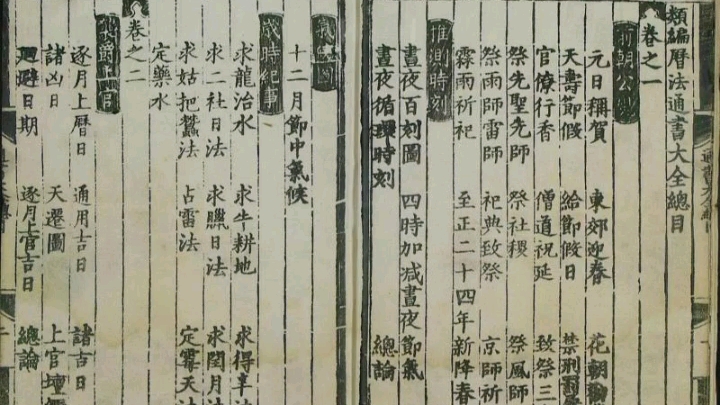 類編曆法通書大全總目
卷之一
元日稱賀 東郊迎春 花朝
天壽節假 給節假日 禁刑
官僚行香 僧道祝延 致祭三
祭先聖先師 祭社稷 祭風師
祭雨師雷師 祀典致祭 京師祈
霖雨祈祀 至正二十四年新降春
推測時刻
晝夜百刻圖 四時加減晝夜節氣
晝夜循環時刻 總論
十二月節中氣候
歲時紀事
求龍治水 求牛耕地 求得辛
求二社日法 求臘日法 求閏月法
求姑把蠶法 占雷法 定霉天法
定藥水
卷之二
襲爵上官
逐月上曆日 通用吉日 諸吉日
諸凶日 天遷圖 上官壇
迴避日期 逐月上官吉日 總論